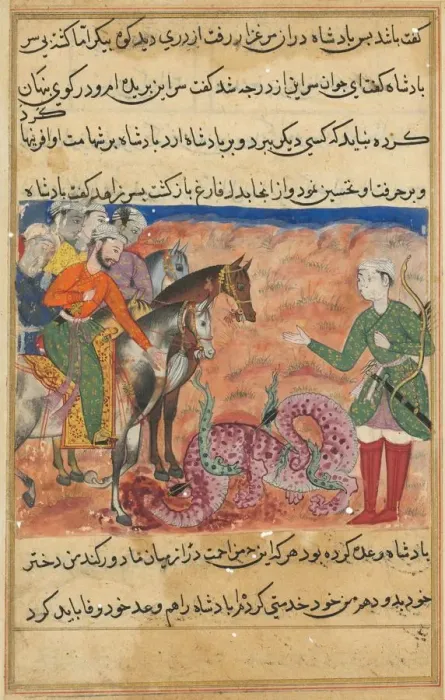 گفت باشد پس بادشاه دران مرغزار رفت اژدری دید کوه پیکر اما کشته بی سر
بادشاه گفت ای جوان سر این اژدر چه شد گفت سر این بریده ام و در کوی پنهان
کرده نباید که کسی دیگر ببرد و بر بادشاه ارد بادشاه بر شهامت او افرینها
و تحسین نمود و از انجا بدل فارغ بازگشت پسر زاهد گفت بادشاه
بادشاه وعده کرده بود هر که این چنین از میان ما دور کند من دختر
خود بدو دهم من خود خدمتی کردم بادشاه را هم وعده خود وفا باید کرد